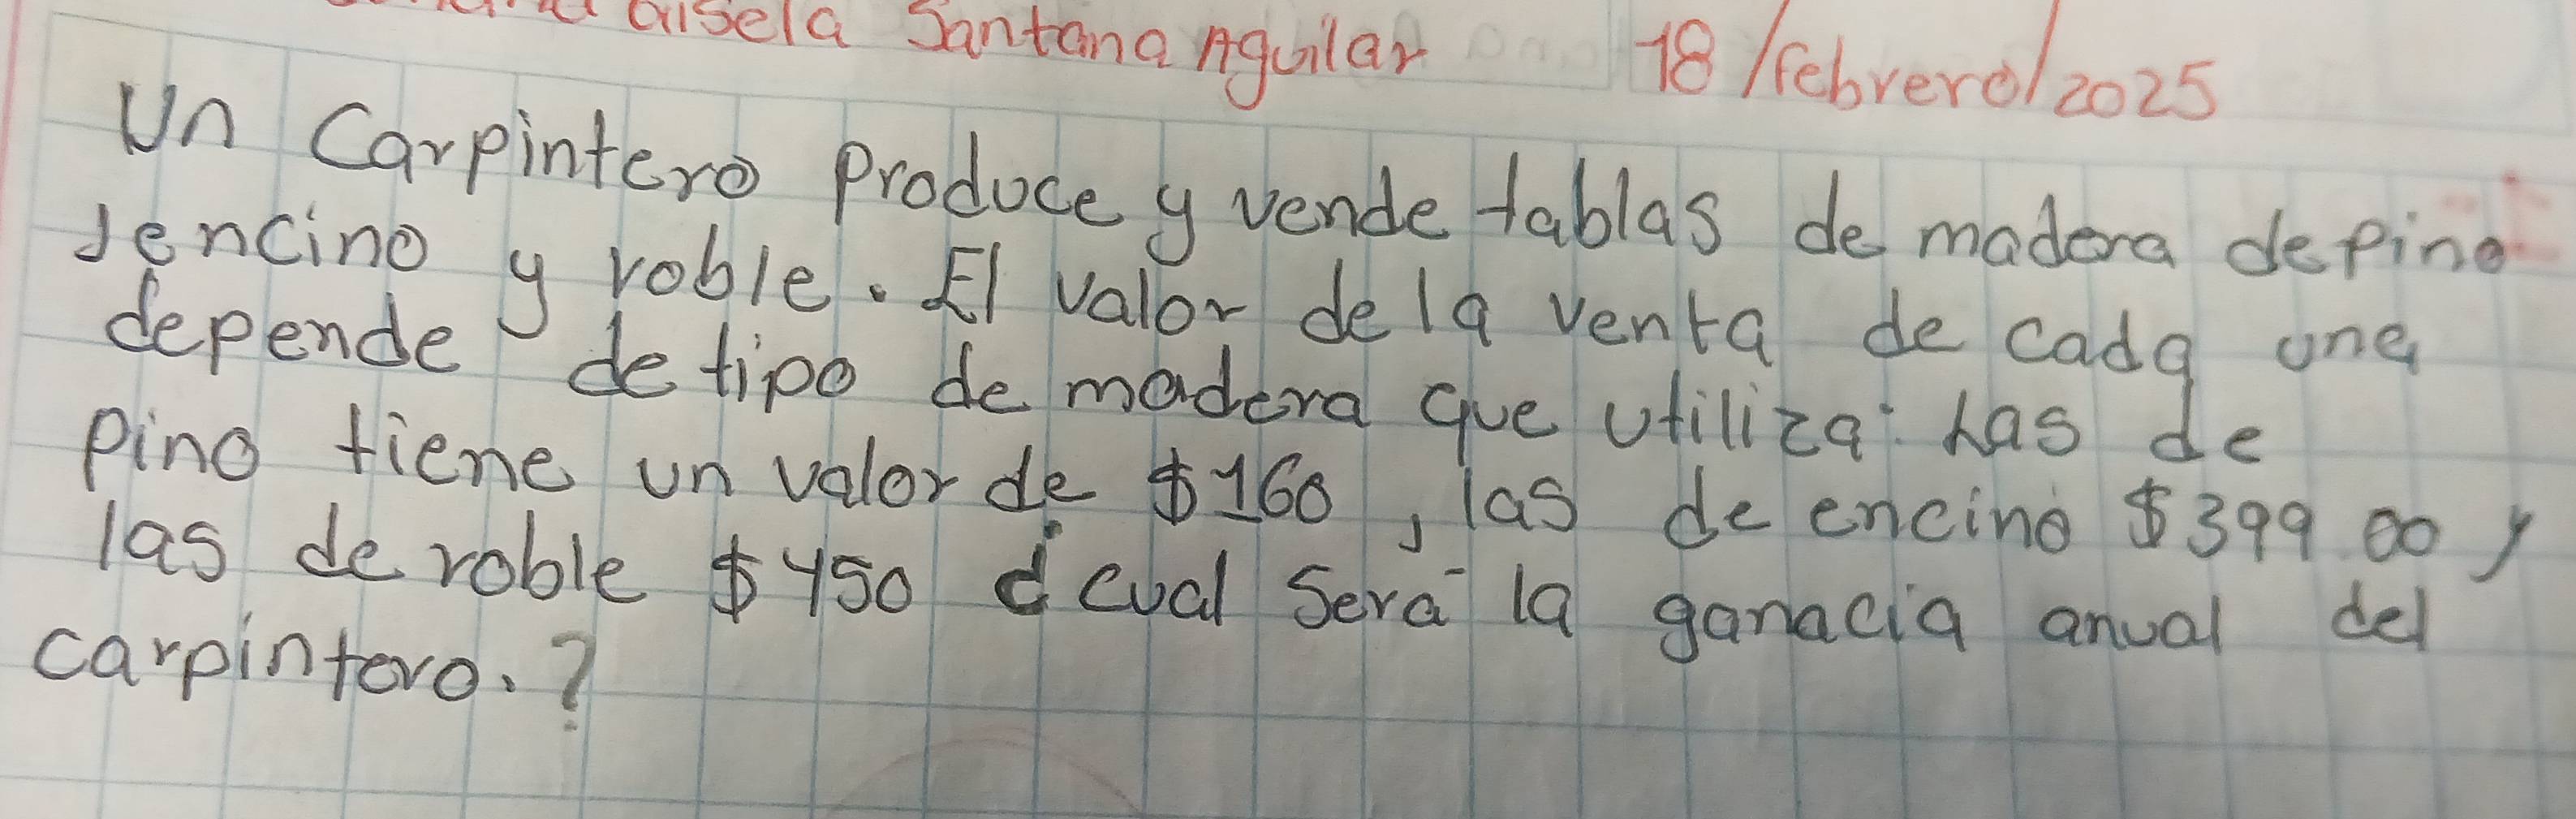 Gisela Santana Aguilar 18/febrero/2025
Un Carpintero produce y vende tablas de madera de pino
, encino y roble. El valor de la venta de cada una
depende de tipo de madera que utiliza: Las de
pino tiene un valor de $160, las de encino $399.00 y
las de roble $450 ¿cual será la ganacia anual del
carpintero.?